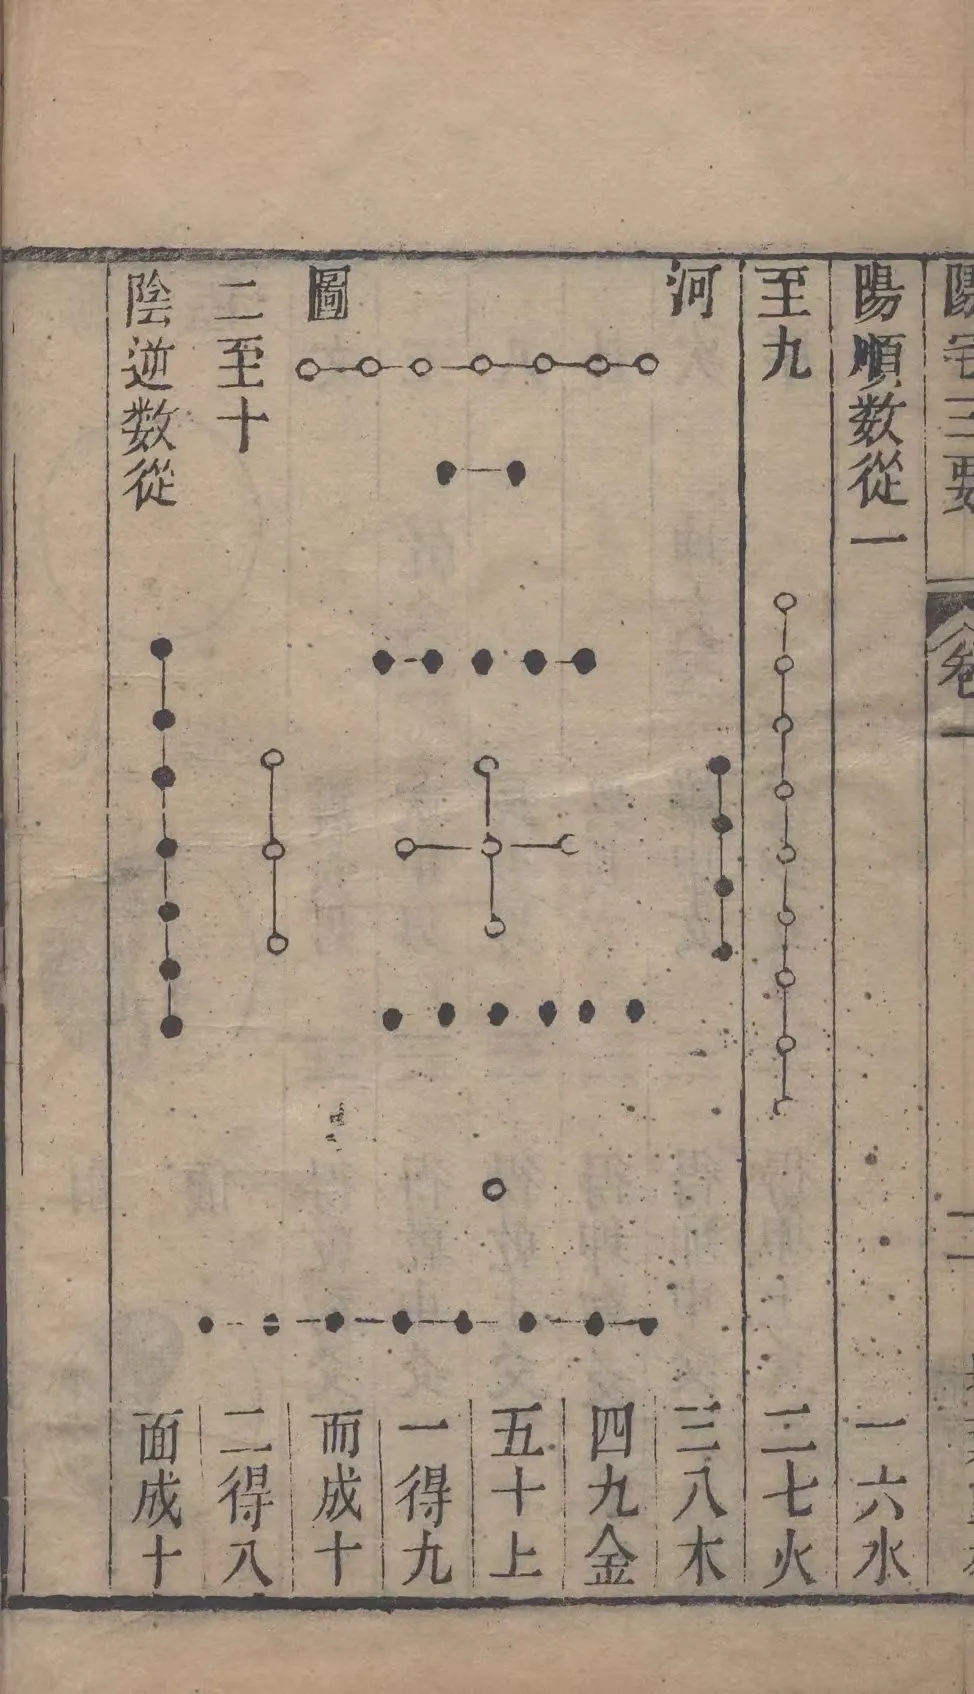 陽宅三要
卷一
二
陽順数從一
至九
河
圖
二至十
陰逆数從
一六水
二七火
三八木
四九金
五十上
一得九
而成十
二得八
面成十